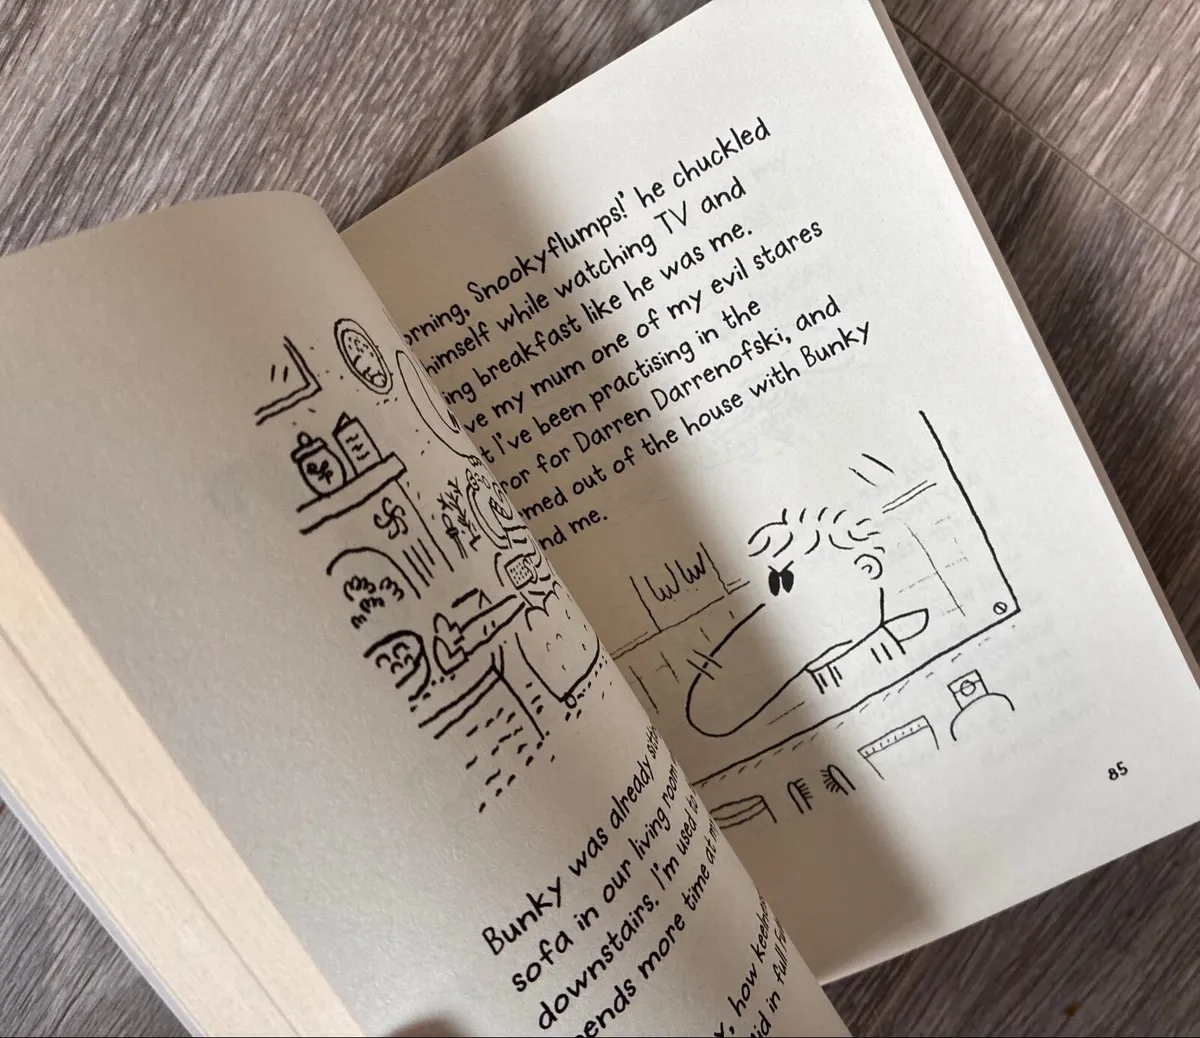 Bunky was already
sofa in our living room
downstairs. I'm used
more time at
how
in full
Snookyflumps!' he chuckled
himself while watching TV and
breakfast like he was me.
my mum one of my evil stares
I've been practising in the
for Darren Darrenofski, and
out of the house with Bunky
me.
85